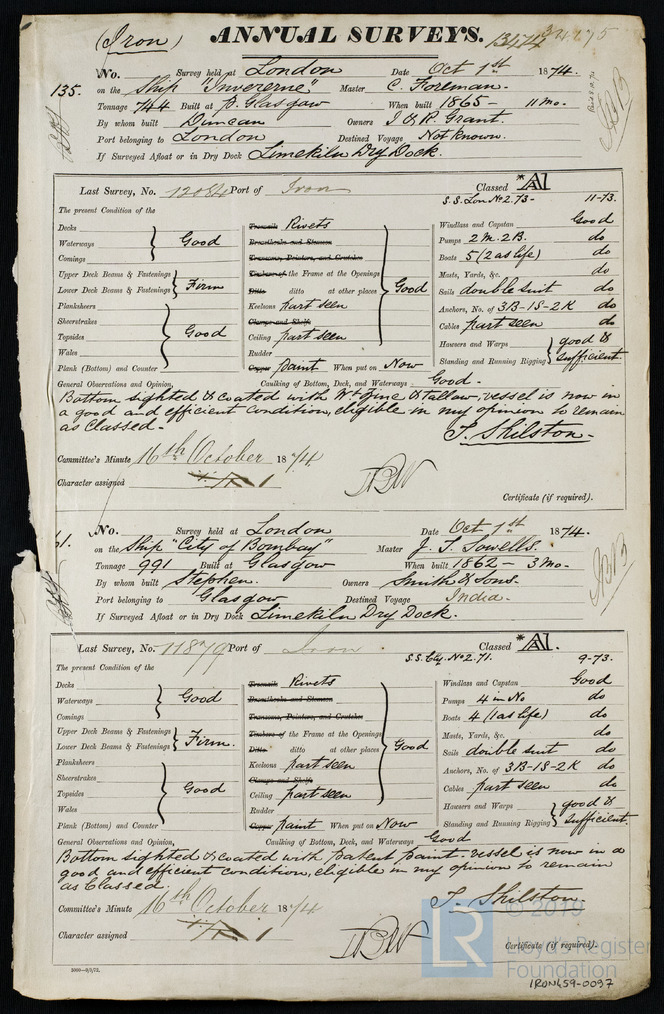 (Iron) ANNUAL SURVEYS. 13474 34275
No. Survey held at London Date Oct 1st 1874.
135. on the Ship "Invererne" Master C. Foreman.
Tonnage 744 Built at P. Glasgow When built 1865 - 11 Mo.
By whom built Duncan Owners J & R. Grant.
Port belonging to London Destined Voyage Not known.
If Surveyed Afloat or in Dry Dock Limekiln Dry Dock.
Last Survey, No. 12084 Port of Iron Classed *A1
S.S. Lon No 2. 73 - 11-73.
The present Condition of the
Decks
Waterways Good
Comings
Upper Deck Beams & Fastenings
Lower Deck Beams & Fastenings Firm
Planksheers
Sheerstrakes
Topsides Good
Wales
Plank (Bottom) and Counter
Treenails Rivets
Breasthooks and Stemson
Transoms, Pointers, and Crutches
Timbers of the Frame at the Openings
Ditto ditto at other places Good
Keelsons part seen
Clamps and Shelfs
Ceiling part seen
Rudder
Copper paint When put on Now
Windlass and Capstan Good
Pumps 2 M. 2B. do
Boats 5 (2 as life) do
Masts, Yards, &c. do
Sails double suit do
Anchors, No. of 3B-1S-2K do
Cables part seen do
Hawsers and Warps good &
Standing and Running Rigging sufficient.
General Observations and Opinion, Caulking of Bottom, Deck, and Waterways Good.
Bottom sighted & coated with Wt Zinc & Tallow, vessel is now in
a good and efficient condition, eligible in my opinion to remain
as Classed -
T. Skilston -
Committee's Minute 16th October 1874.
Character assigned
Certificate (if required).
No. Survey held at London Date Oct 1st 1874.
61. on the Ship "City of Bombay" Master J. T. Sowells.
Tonnage 991 Built at Glasgow When built 1862 - 3 Mo.
By whom built Stephen. Owners Smith & Sons.
Port belonging to Glasgow Destined Voyage India.
If Surveyed Afloat or in Dry Dock Limekiln Dry Dock.
Last Survey, No. 11879 Port of Iron Classed *A1.
S.S. Cly. No 2. 71. 9-73.
The present Condition of the
Decks
Waterways Good
Comings
Upper Deck Beams & Fastenings
Lower Deck Beams & Fastenings Firm.
Planksheers
Sheerstrakes
Topsides Good
Wales
Plank (Bottom) and Counter
Treenails Rivets
Breasthooks and Stemson
Transoms, Pointers, and Crutches
Timbers of the Frame at the Openings
Ditto ditto at other places Good
Keelsons part seen
Clamps and Shelfs
Ceiling part seen
Rudder
Copper paint When put on Now
Windlass and Capstan Good
Pumps 4 in No do
Boats 4 (1 as life) do
Masts, Yards, &c. do
Sails double suit do
Anchors, No. of 3B-1S-2K do
Cables part seen do
Hawsers and Warps good &
Standing and Running Rigging sufficient.
General Observations and Opinion, Caulking of Bottom, Deck, and Waterways Good
Bottom sighted & coated with patent paint. vessel is now in a
good and efficient condition, eligible in my opinion to remain
as Classed.
T. Skilston.
Committee's Minute 16th October 1874
Character assigned
Certificate (if required).
1000-9/2/72.
LR © 2019
Lloyd's Register
Foundation
IRON459-0097